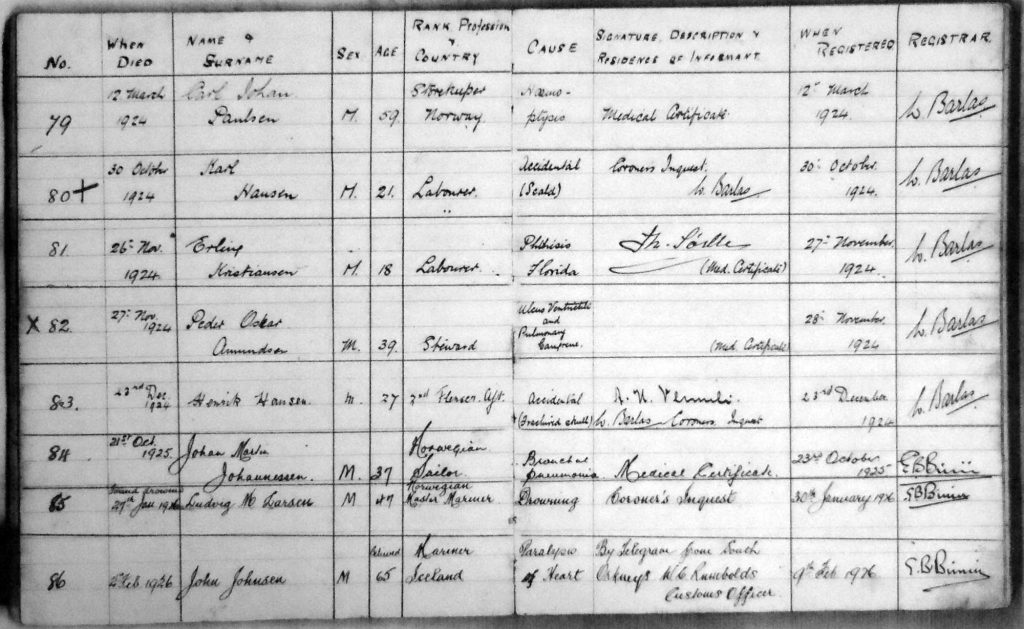 No. WHEN DIED NAME & SURNAME SEX AGE RANK Profession & COUNTRY CAUSE SIGNATURE, DESCRIPTION & RESIDENCE OF INFORMANT WHEN REGISTERED REGISTRAR
12 March Carl Johan Storekeeper Haemo- 12th March
79 1924 Paulsen M. 59. Norway ptysis Medical Certificate 1924 W. Barlas
30 October Karl Accidental Coroners Inquest. 30th October.
80+ 1924 Hansen M. 21. Labourer. (Scald) W. Barlas 1924. W. Barlas
81. 26th Nov. Erling Phthisis 27th November.
1924 Kristiansen M. 18 Labourer. Florida (Med. Certificate) 1924. W. Barlas
27th Nov. Ulcus Ventriculi
X 82. 1924 Peder Oskar and Pulmonary 28th November.
Amundsen M. 39. Steward Gangrene. (Med. Certificate) 1924 W. Barlas
23rd Dec. Accidental 23rd December
83. 1924 Henrik Hansen. M. 27 2nd Flenser. (Fractured skull) W. Barlas Coroners Inquest 1924 W. Barlas
21st Oct. Norwegian
84 1925. Johan Martin Bronchial 23rd October
Johannessen. M. 37 Sailor pneumonia Medical Certificate. 1925 E.B. Binnie
Found drowned Norwegian
85 27th Jan 1926 Ludvig M Larsen M 47 Master Mariner Drowning Coroner's Inquest 30th January 1926 E.B. Binnie
Mariner Paralysis By Telegram from South
86 Feb 1926 John Johnsen M 65 Iceland of Heart Orkneys W.C. Rumbolds 9th Feb 1926 E.B. Binnie
Customs Officer